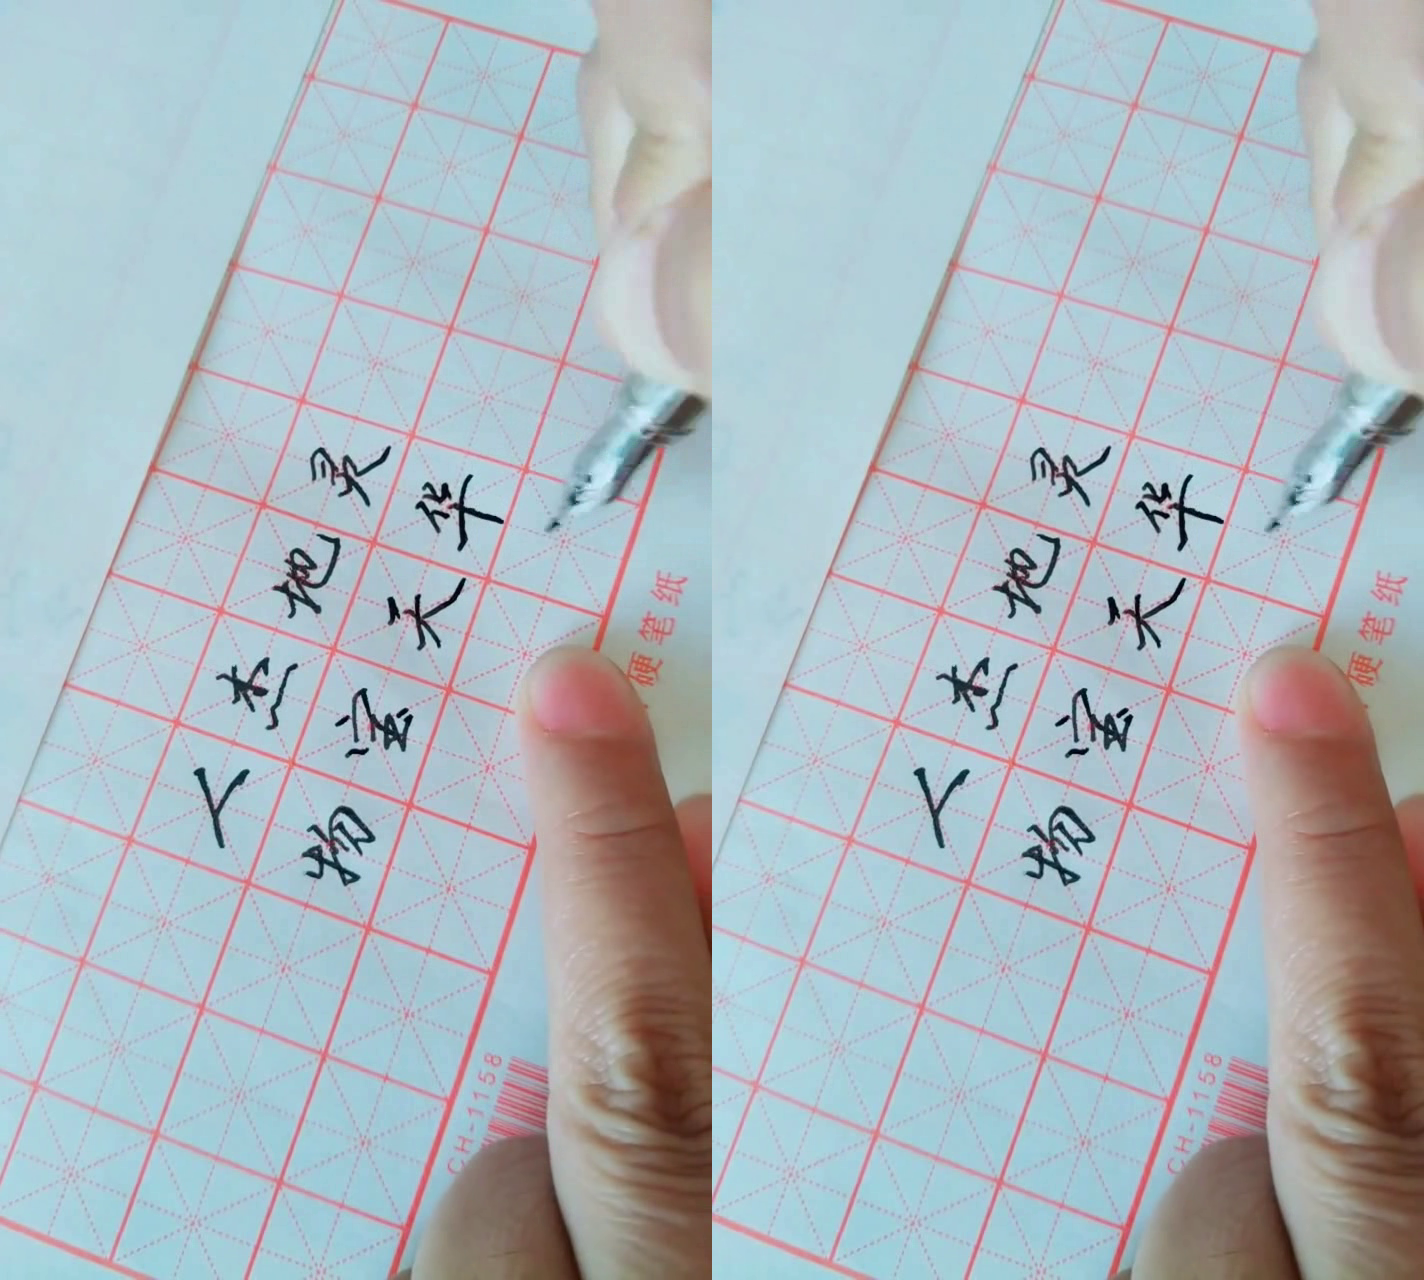 人杰地灵
物宝天华
硬笔纸
CH-1158
人杰地灵
物宝天华
硬笔纸
CH-1158